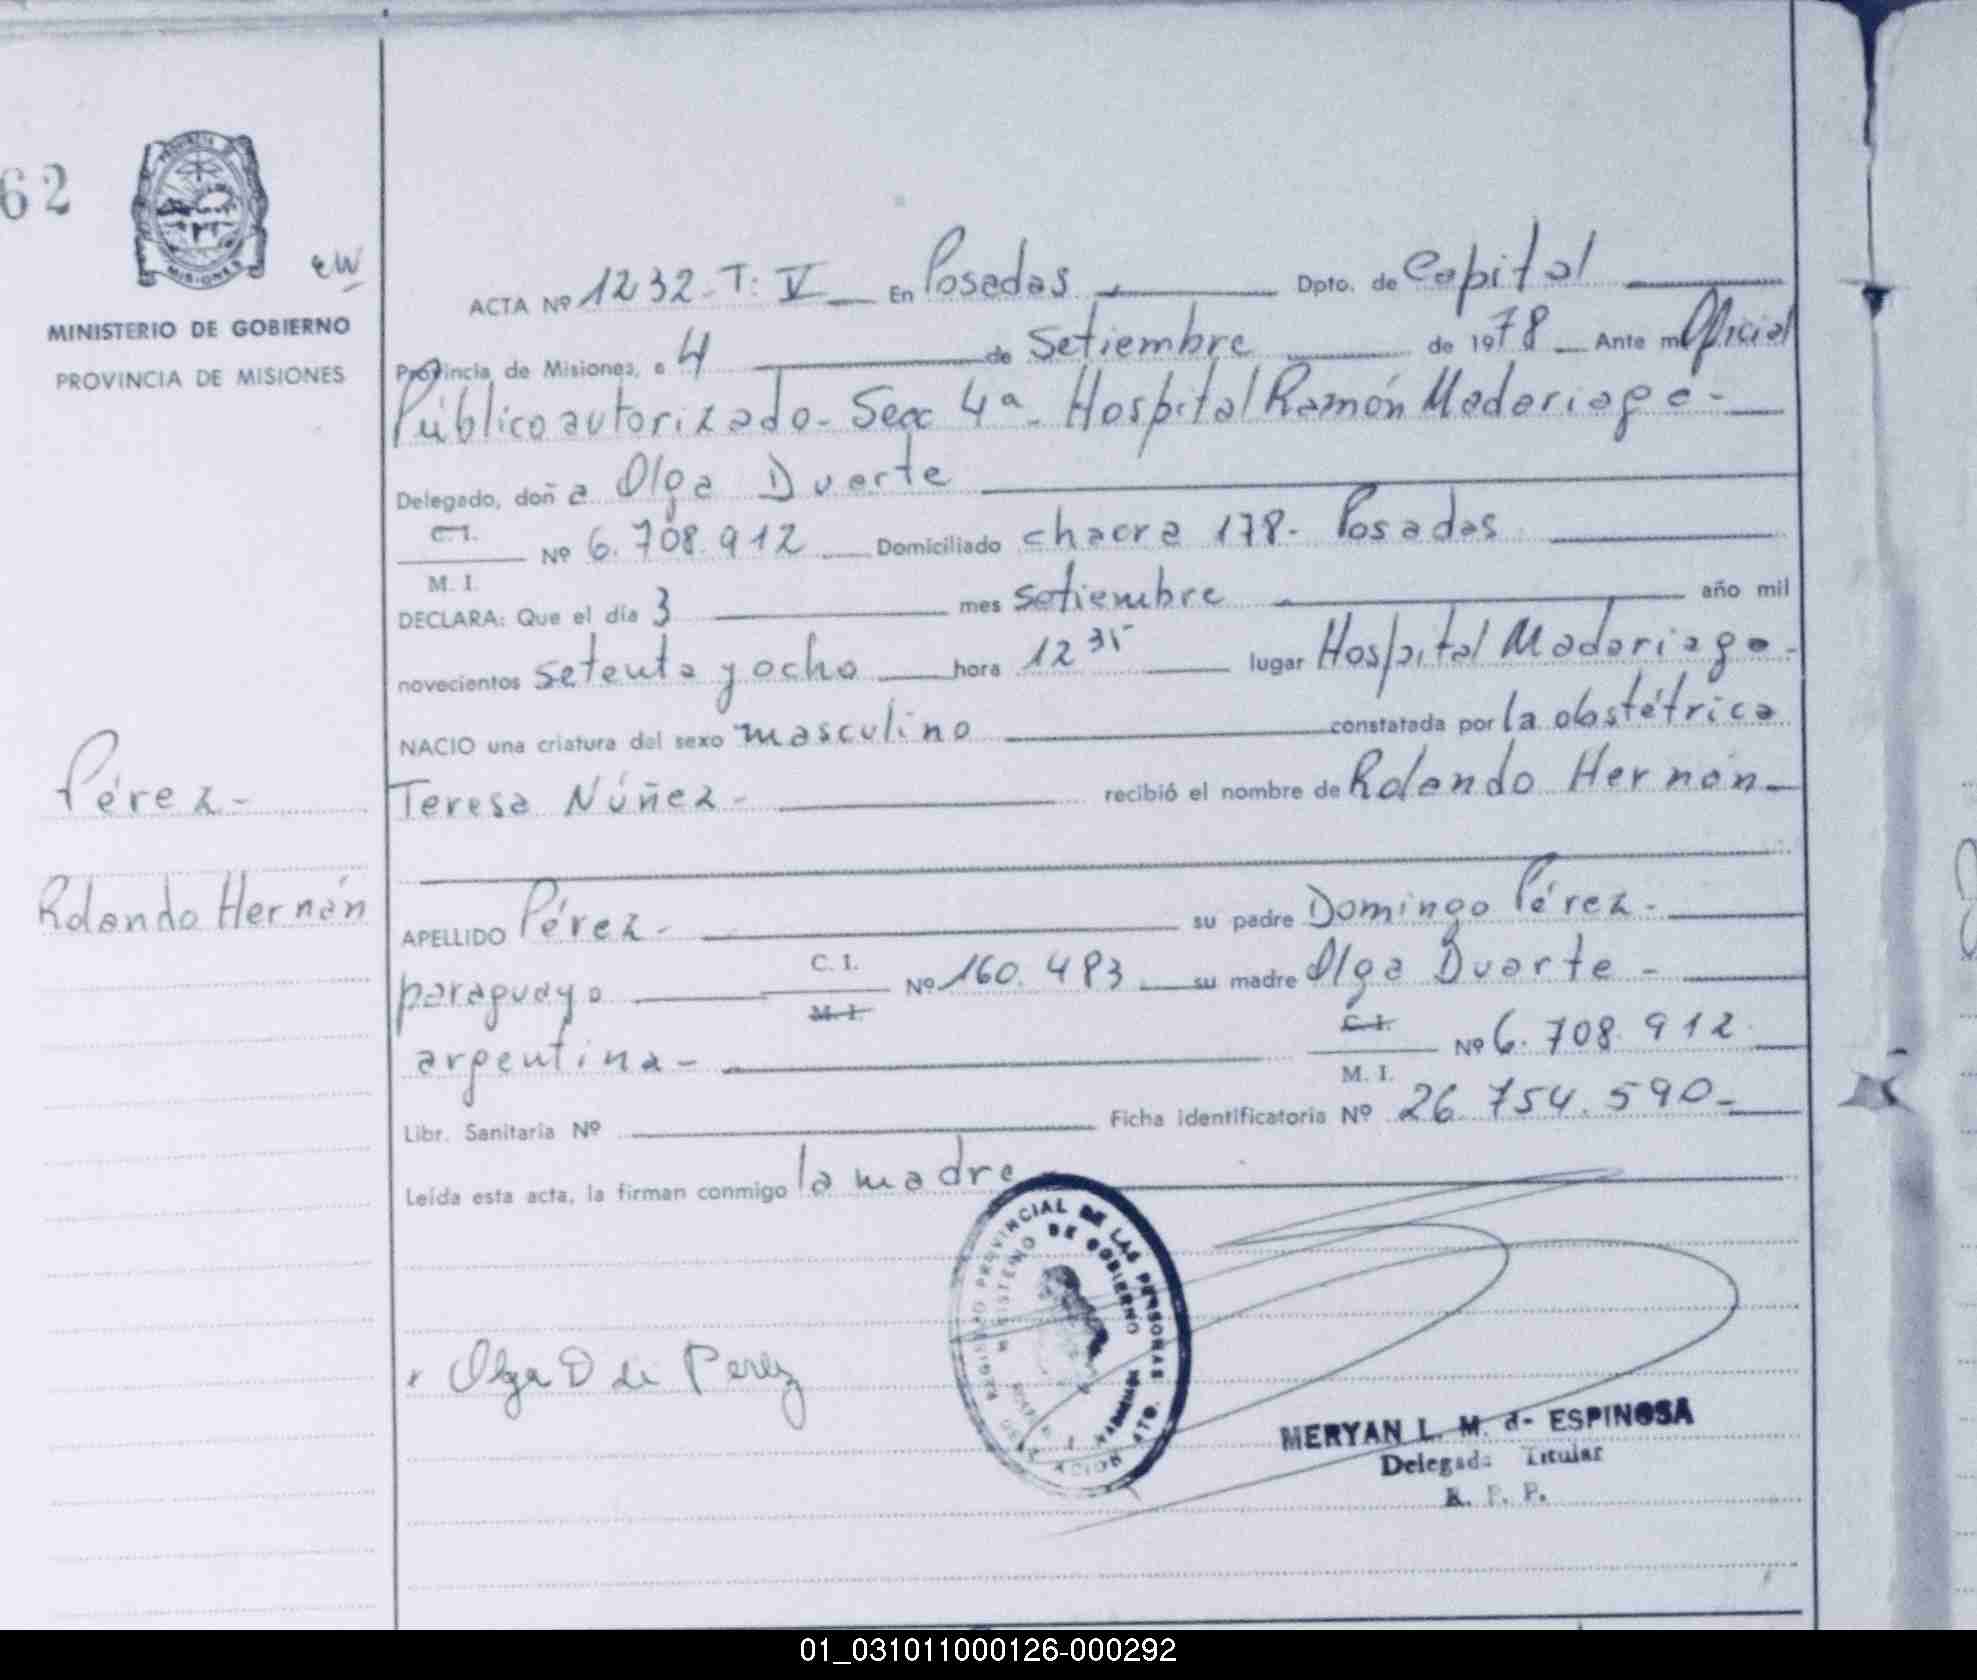 62
MISIONES
MINISTERIO DE GOBIERNO
PROVINCIA DE MISIONES
ACTA Nº 1232 - T: V En Posadas Dpto. de Capital
Provincia de Misiones, a 4 de Setiembre de 1978 Ante mi Oficial
Público autorizado - Secc 4ª - Hospital Ramón Madariaga -
Delegado, doña Olga Duarte
C. I.
Nº 6.708.912 Domiciliado chacra 178 - Posadas
M. I.
DECLARA: Que el día 3 mes setiembre año mil
novecientos setenta y ocho hora 12 35 lugar Hospital Madariaga -
NACIO una criatura del sexo masculino constatada por la obstétrica
Teresa Núñez - recibió el nombre de Rolando Hernán
Pérez -
Rolando Hernán
APELLIDO Pérez - su padre Domingo Pérez -
paraguayo C. I. Nº 160.483 su madre Olga Duarte -
M. I.
argentina - C. I. Nº 6.708.912
M. I.
Libr. Sanitaria Nº Ficha identificatoria Nº 26.754.590 -
Leída esta acta, la firman conmigo la madre
REGISTRO PROVINCIAL DE LAS PERSONAS
MINISTERIO DE GOBIERNO
Olga D de Perez
MERYAN L. M. de ESPINOSA
Delegada Titular
R. P. P.
01_031011000126-000292